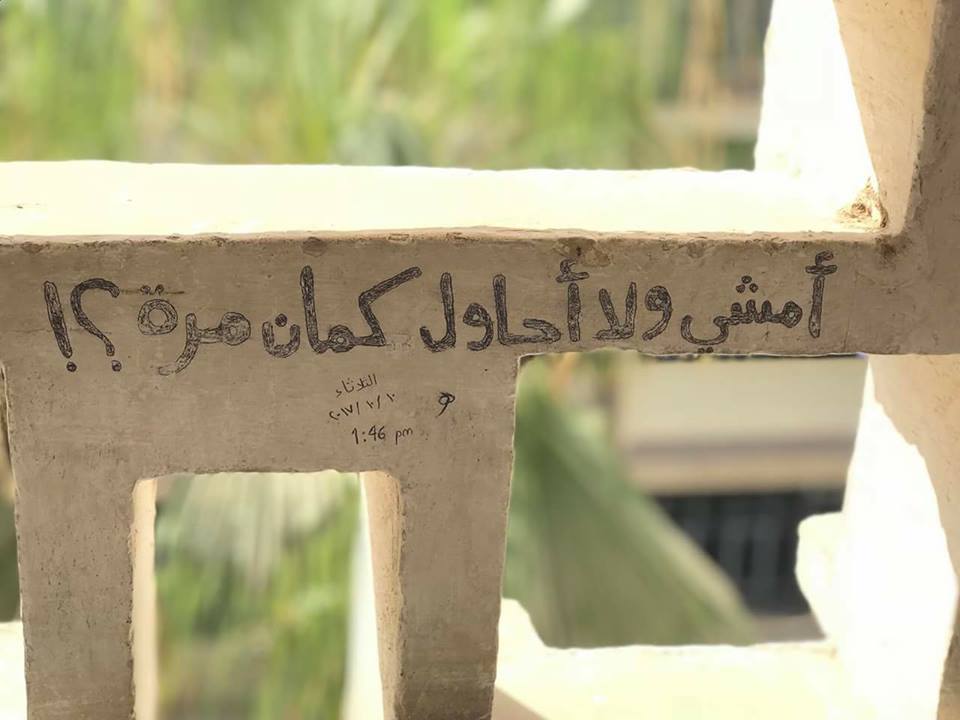 أمشي ولا أحاول كمان مرة؟!
الثلاثاء
٢٠١٧/١٠/١٠
1:46 pm